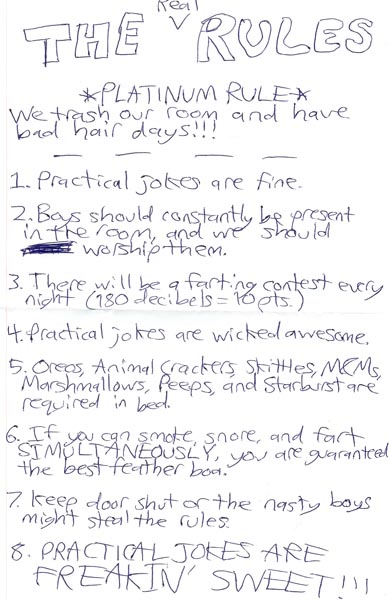 THE Real RULES
*PLATINUM RULE*
We trash our room and have
bad hair days!!!
1. Practical jokes are fine.
2. Boys should constantly be present
in the room, and we should
worship them.
3. There will be a farting contest every
night (180 decibels = 10 pts.)
4. Practical jokes are wicked awesome.
5. Oreos, Animal Crackers, Skittles, M&Ms,
Marshmallows, Peeps, and Starburst are
required in bed.
6. If you can smoke, snore, and fart
SIMULTANEOUSLY, you are guaranteed
the best feather boa.
7. Keep door shut or the nasty boys
might steal the rules.
8. PRACTICAL JOKES ARE
FREAKIN' SWEET!!!